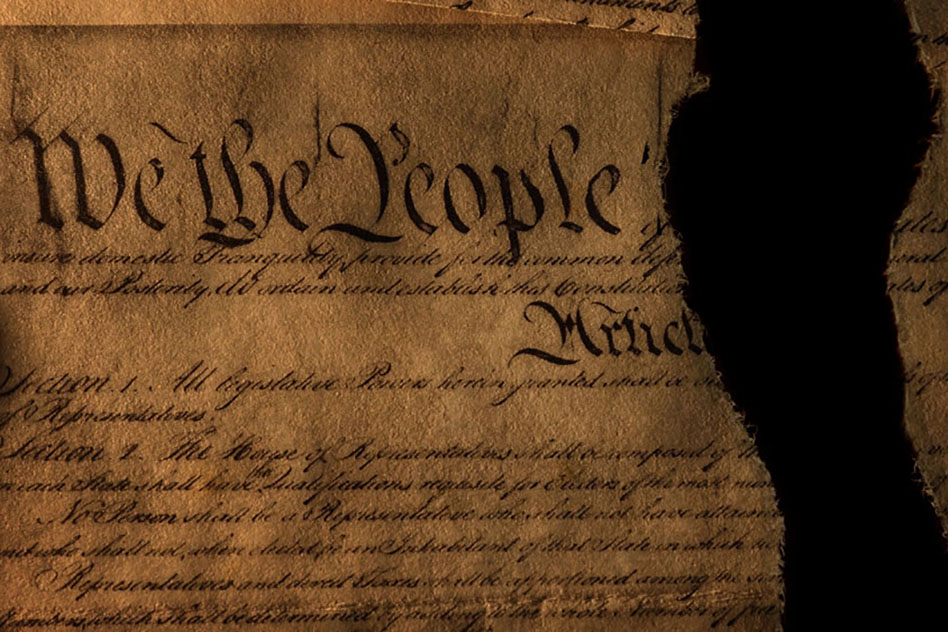 We the People
insure domestic Tranquility, provide for the common defe
and our Posterity, do ordain and establish this Constitution
Articl
Section. 1. All legislative Powers herein granted shall be
of Representatives.
Section. 2. The House of Representatives shall be composed of
in each State shall have the Qualifications requisite for Electors of the most
No Person shall be a Representative who shall not have attained
and who shall not, when elected, be an Inhabitant of that State in which
Representatives and direct Taxes shall be apportioned among the
Numbers, which shall be determined by adding to the whole Number of